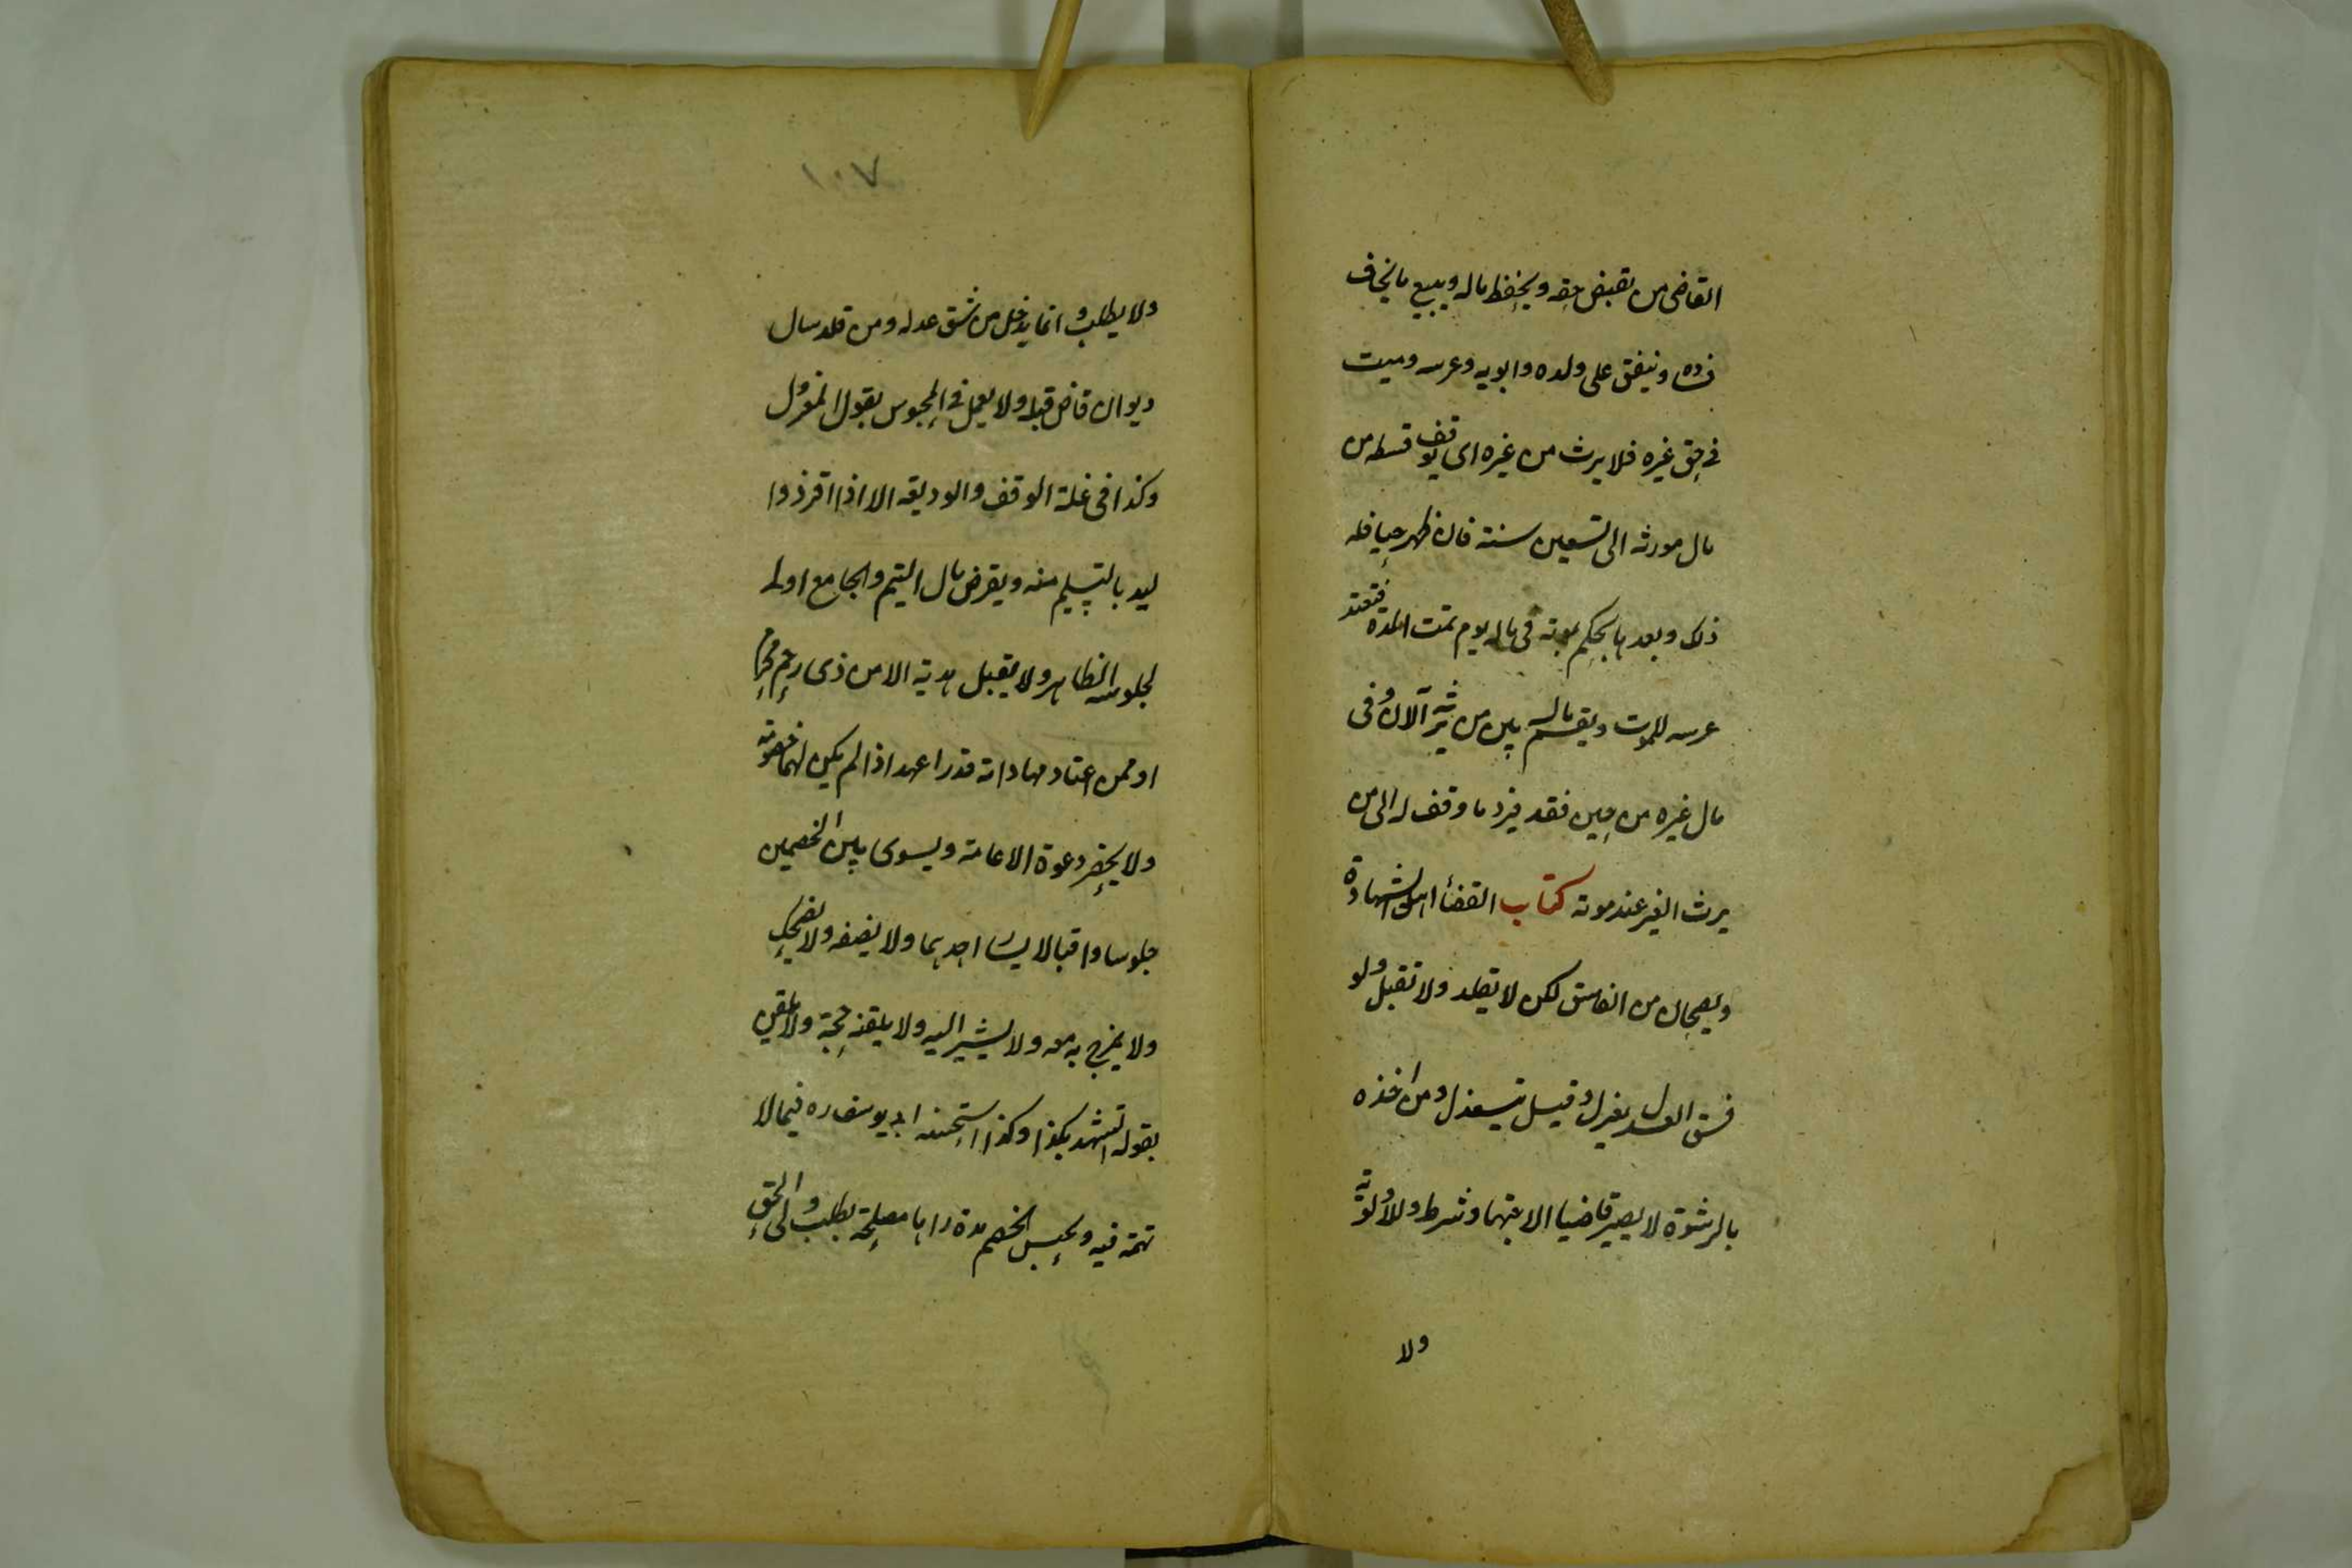 القاضى من تقبض حقه ويحفظ ماله ويبيع ما يخاف
فساده وينفق على ولده وابويه وعرسه وميت
فى حق غيره فلا يرث من غيره اى يوقف قسطه من
مال مورثه الى تسعين سنة فان ظهر حيا فله
ذلك وبعدها يحكم بموته فى ماله يوم تمت المدة فتعتد
عرسه للموت ويقسم ماله بين من يرثه الآن وفى
مال غيره من حين فقد فيرد ما وقف له الى من
يرث الغير عند موته كتاب القضأ اهله اهل الشهادة
ويصحان من الفاسق لكن لا تقلد ولا تقبل ولو
فسق العدل يعزل وقيل ينعزل ومن اخذه
بالرشوة لا يصير قاضيا الاجتهاد شرط وللاولوية
ولا
١٠٧
ولا يطلب وانما يدخل من يثق عدله ومن قلد سال
ديوان قاض قبله ولا يعمل فى المحبوس بقول المعزول
وكذا فى غلة الوقف والوديعه الا اذا اقر ذوا
ليد بالتسليم منه ويقرض مال اليتيم والجامع اولى
لجلوسه الظاهر ولا يقبل هدية الا من ذى رحم محرم
او ممن اعتاد مهاداته قدرا عهد اذا لم يكن لهما خصومة
ولا يحضر دعوة الا عامة ويسوى بين الخصمين
جلوسا واقبالا لا يسار احدهما ولا يضيفه ولا يضحك
ولا يمزح به معه ولا يشير اليه ولا يلقنه حجة ولا يلقن
بقوله اتشهد بكذا وكذا استحسنه ابو يوسف ره فيما لا
تهمة فيه ويحبس الخصم مدة راها مصلحة بطلب ولى الحق